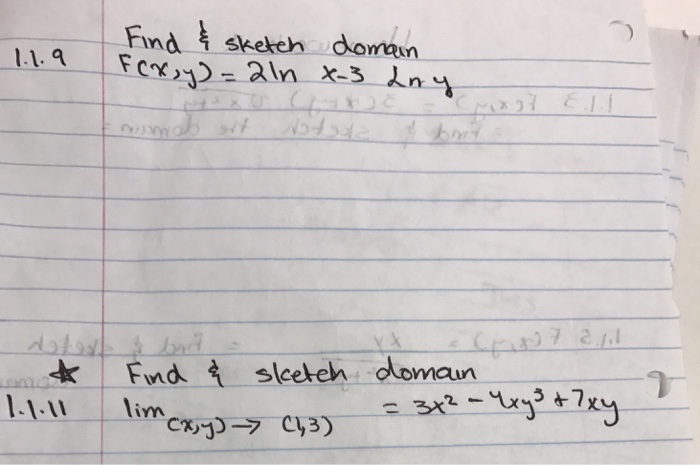 1.1.9 Find & sketch domain
F(x,y) = 2ln x-3 Ln y
Find & sketch domain
1.1.11 lim (x,y) → (1,3) = 3x² - 4xy³ + 7xy